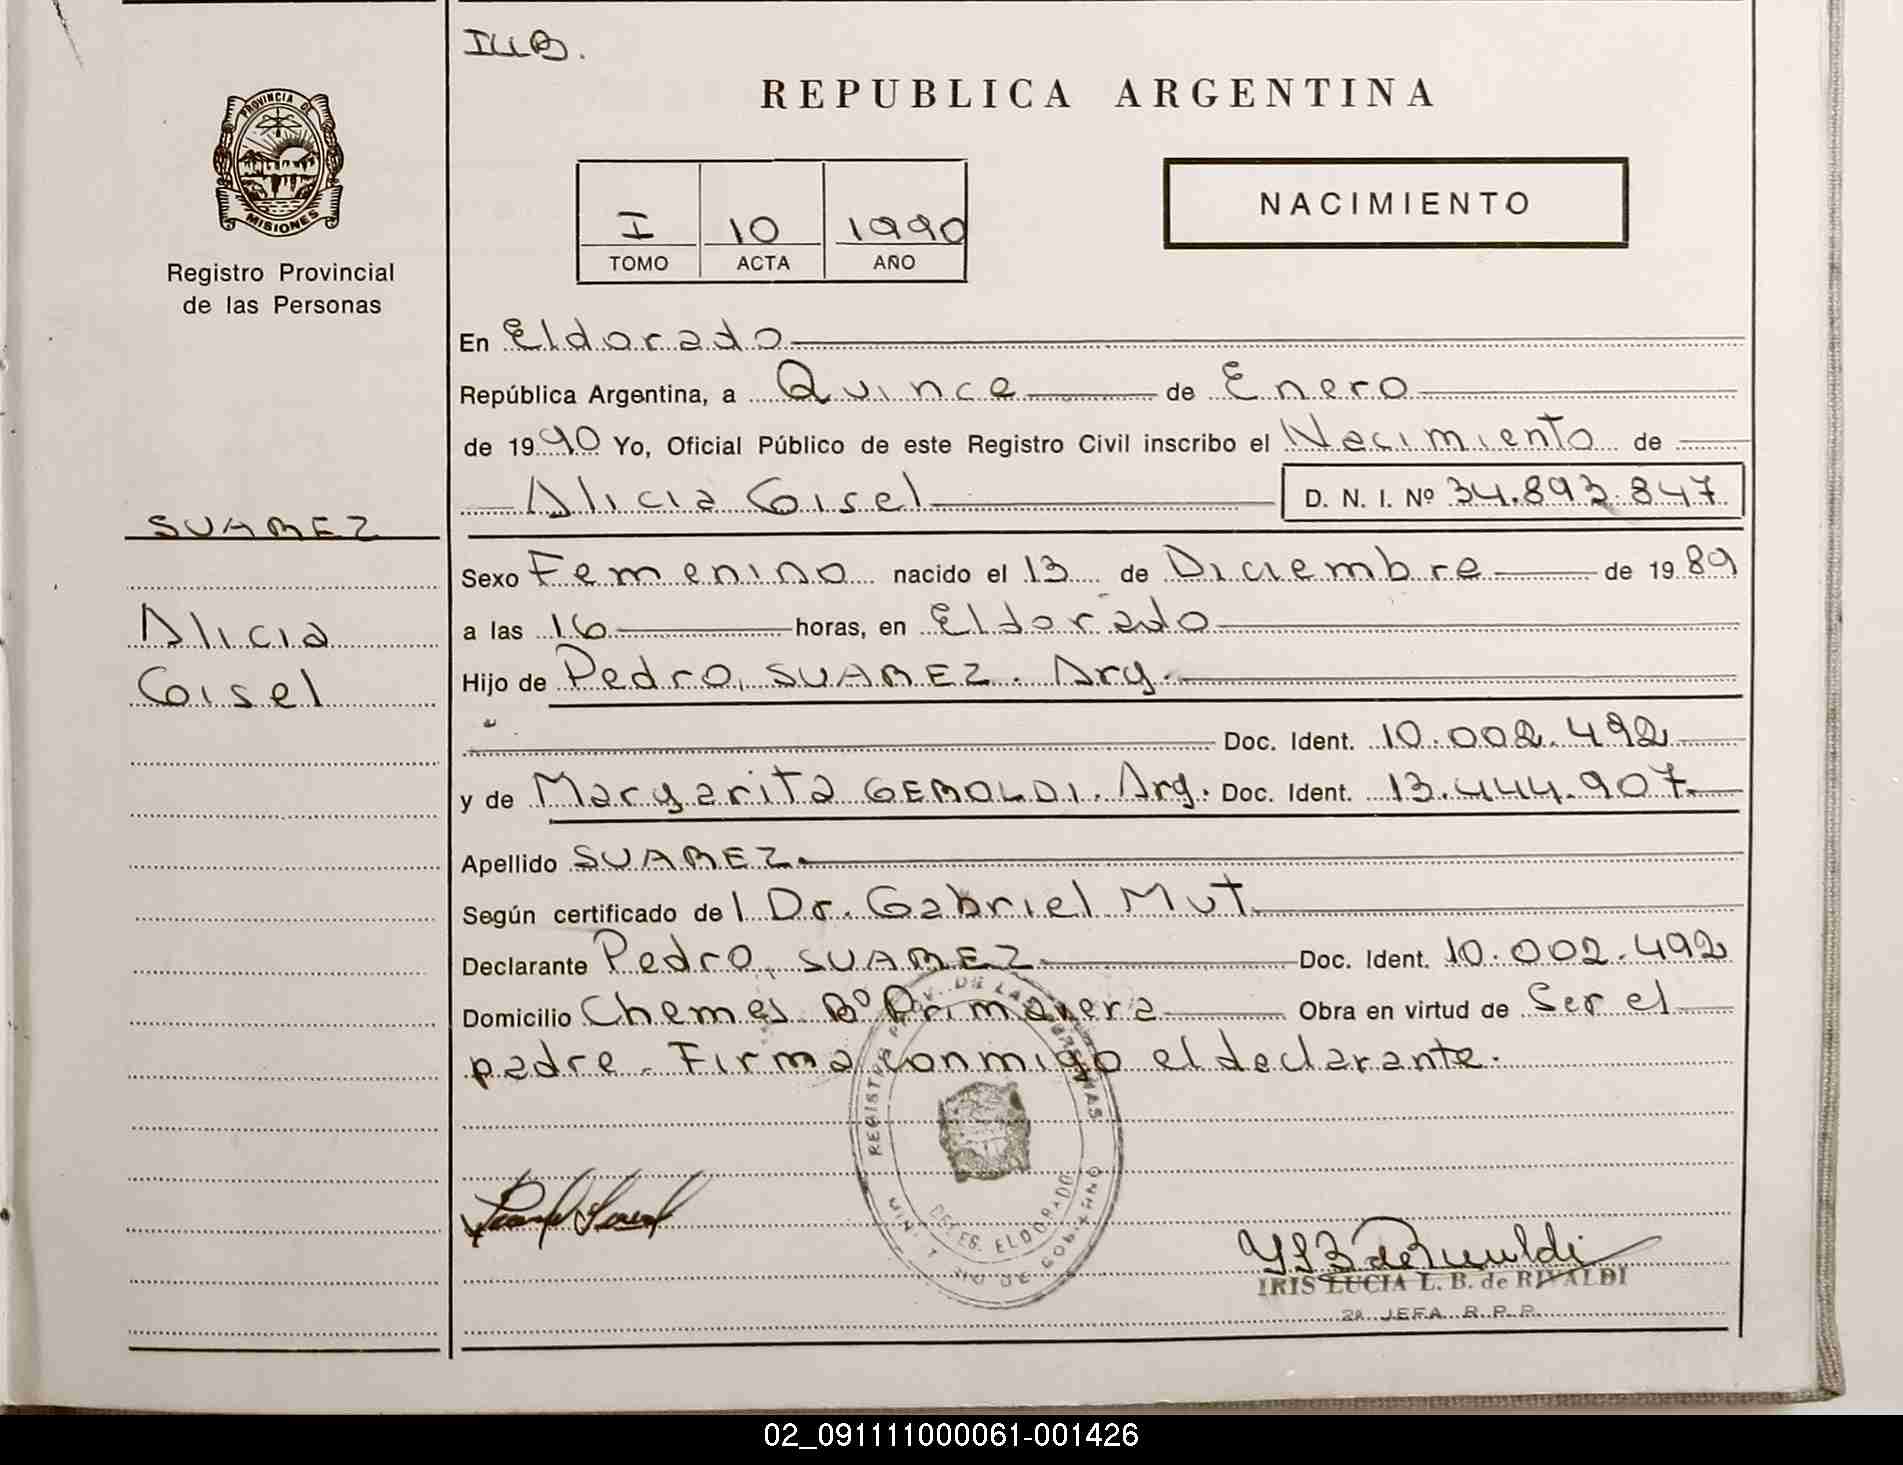 ILLB.
REPUBLICA ARGENTINA
PROVINCIA DE
MISIONES
Registro Provincial
de las Personas
I 10 1990
TOMO ACTA AÑO
NACIMIENTO
En Eldorado
República Argentina, a Quince de Enero
de 1990 Yo, Oficial Público de este Registro Civil inscribo el Nacimiento de
Alicia Gisel D. N. I. Nº 34.893.847
SUAREZ
Alicia
Gisel
Sexo Femenino nacido el 13 de Diciembre de 1989
a las 16 horas, en Eldorado
Hijo de Pedro, SUAREZ. Arg.
Doc. Ident. 10.002.492
y de Margarita GEROLDI. Arg. Doc. Ident. 13.444.907
Apellido SUAREZ
Según certificado del Dr. Gabriel Mut
Declarante Pedro, SUAREZ Doc. Ident. 10.002.492
Domicilio Chemes Bº Primavera Obra en virtud de Ser el
padre. Firma conmigo el declarante.
DE LAS PERSONAS
DELEG. ELDORADO
MIN. DE GOBIERNO
IRIS LUCIA L. B. de RIVALDI
2a JEFA R. P. P.
02_091111000061-001426